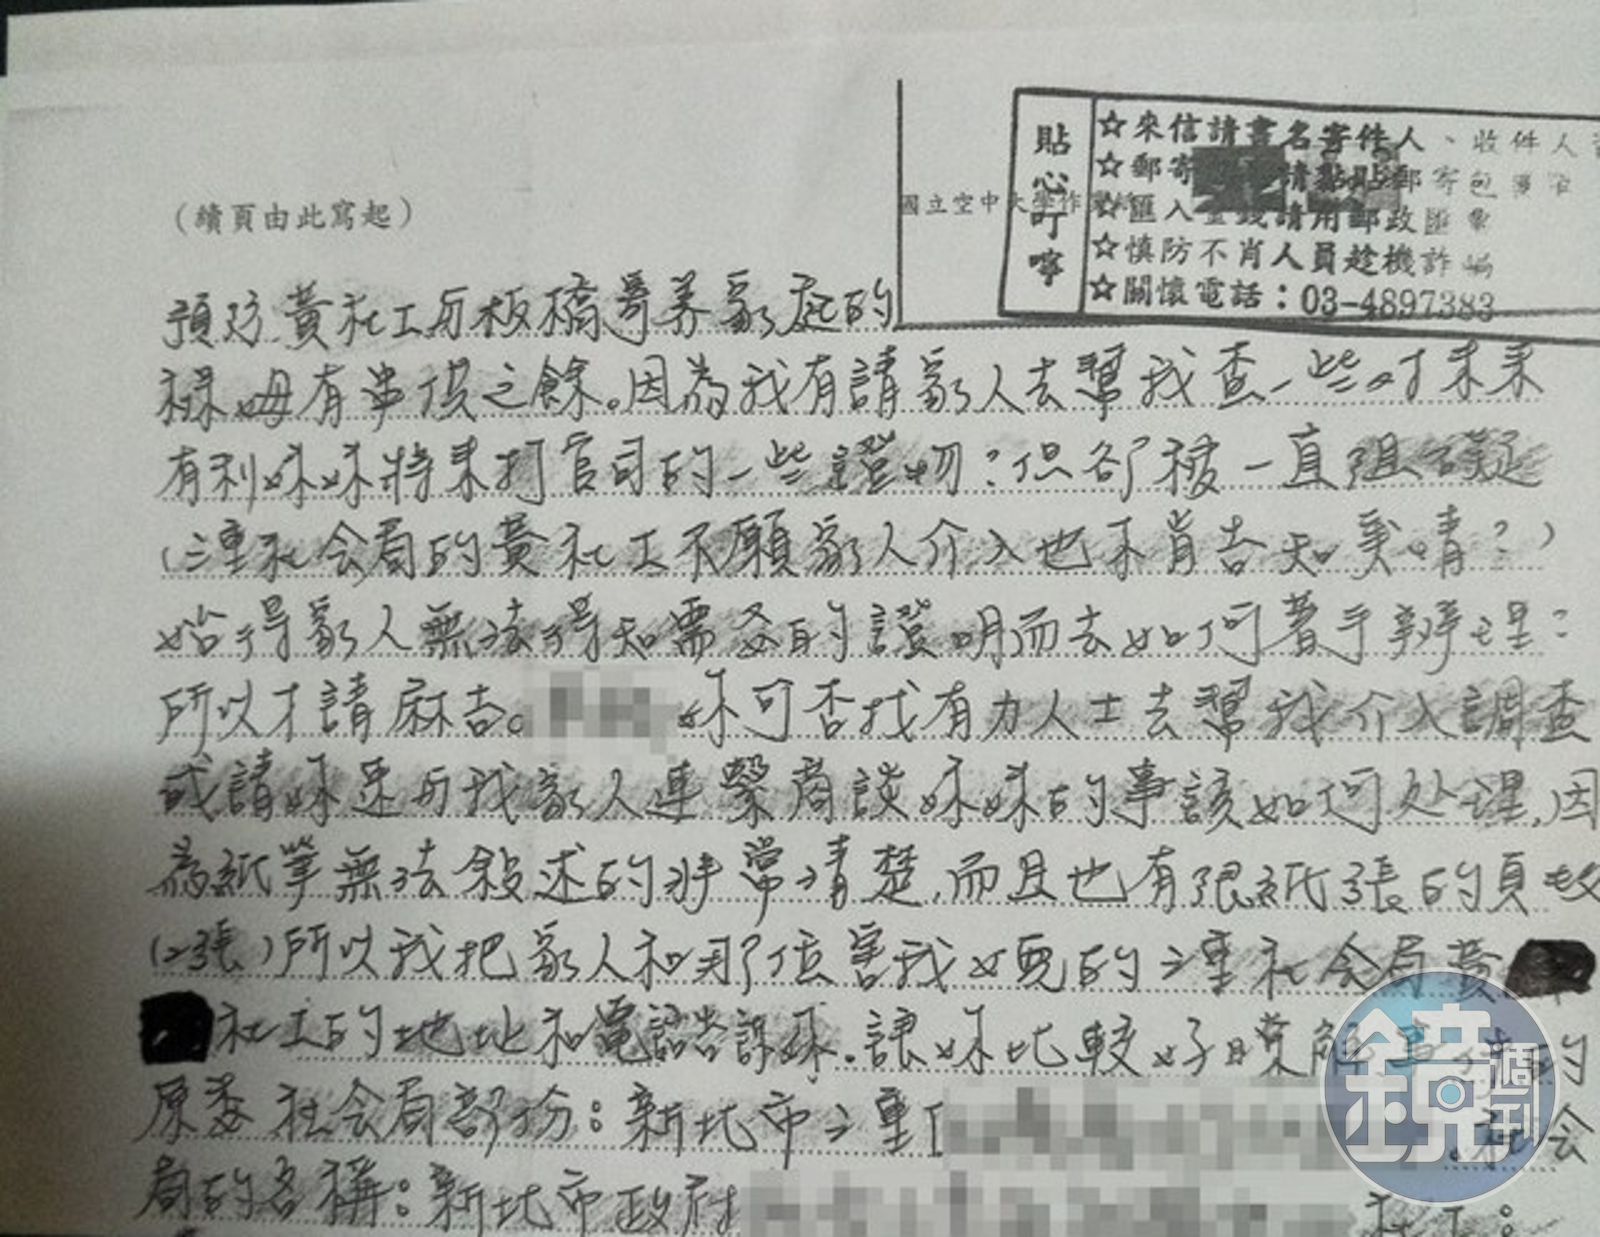 貼心叮嚀
☆來信請書名寄件人、收件人
☆郵寄 請黏貼郵寄包裹
☆匯入金錢請用郵政匯票
☆慎防不肖人員趁機詐騙
☆關懷電話：03-4897383
國立空中大學作業
（續頁由此寫起）
預防黃社工与板橋寄养家庭的
褓姆有串供之餘。因為我有請家人去幫我查一些对未来
有利妹妹将来打官司的一些證物？但卻被一直阻礙
(三重社会局的黃社工不願家人介入也不肯告知案情？)
始得家人無法得知需要的證明而去如何著手辦理？
所以才請麻吉。 妹可否找有力人士去幫我介入調查
或請妹逕与我家人連繫商談妹妹的事該如何处理,因
為紙筆無法敍述的非常清楚,而且也有限紙張的頁數
(2張)所以我把家人和那位害我女兒的三重社会局黃
社工的地址和電話告訴妹.讓妹比較好瞭解事情的
原委 社会局部份：新北市三重 .社会
局的名稱：新北市政府 社工：
鏡週刊